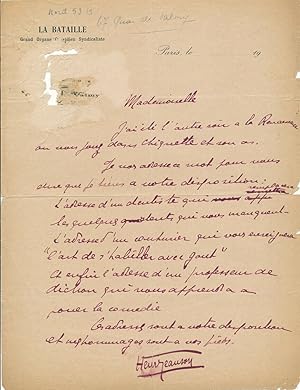 Nord 53 15
67 Quai de Valmy
LA BATAILLE
Grand Organe Quotidien Syndicaliste
Paris, le 19
Mademoiselle
J'ai été l'autre soir a la Renaissance
ou vous jouez dans Chiquette et son as.
Je vous adresse ce mot pour vous
dire que je tiens a votre disposition :
L'adresse d'un dentiste qui remplacera
les quelques dents qui vous manquent
L'adresse d'un couturier qui vous enseignera
"l'art de s'habiller avec gout"
Et enfin l'adresse d'un professeur de
diction qui vous apprendra a
jouer la comedie
Ces adresses sont a votre disposition
et mes hommages sont a vos pieds.
Henri Jeanson